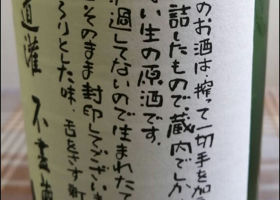 のお酒は搾って一切手を加
詰したもので蔵内でしか
い生の原酒です。
過してないので生まれた
そのまま封印してございま
ろりとした味、舌をさす新
道灌